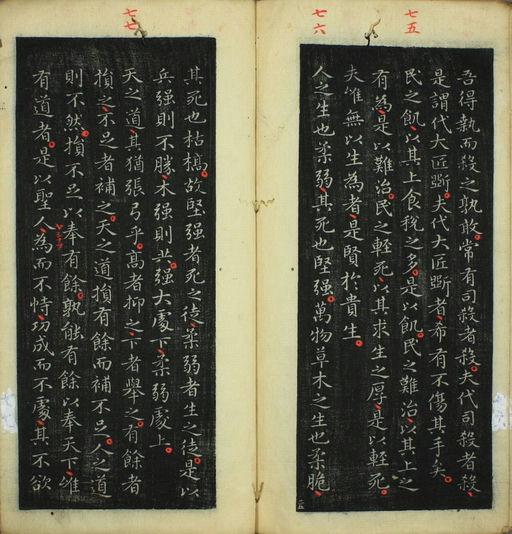 七五
七六
吾得執而殺之孰敢常有司殺者殺夫代司殺者殺
是謂代大匠斲夫代大匠斲者希有不傷其手矣
民之飢以其上食稅之多是以飢民之難治以其上之
有為是以難治民之輕死以其求生之厚是以輕死
夫唯無以生為者是賢於貴生
人之生也柔弱其死也堅强萬物草木之生也柔脆
七七
其死也枯槁故堅强者死之徒柔弱者生之徒是以
兵强則不勝木强則共强大處下柔弱處上
天之道其猶張弓乎高者抑之下者舉之有餘者
損之不足者補之天之道損有餘而補不足人之道
則不然損不足以奉有餘孰能有餘以奉天下唯
有道者是以聖人為而不恃功成而不處其不欲